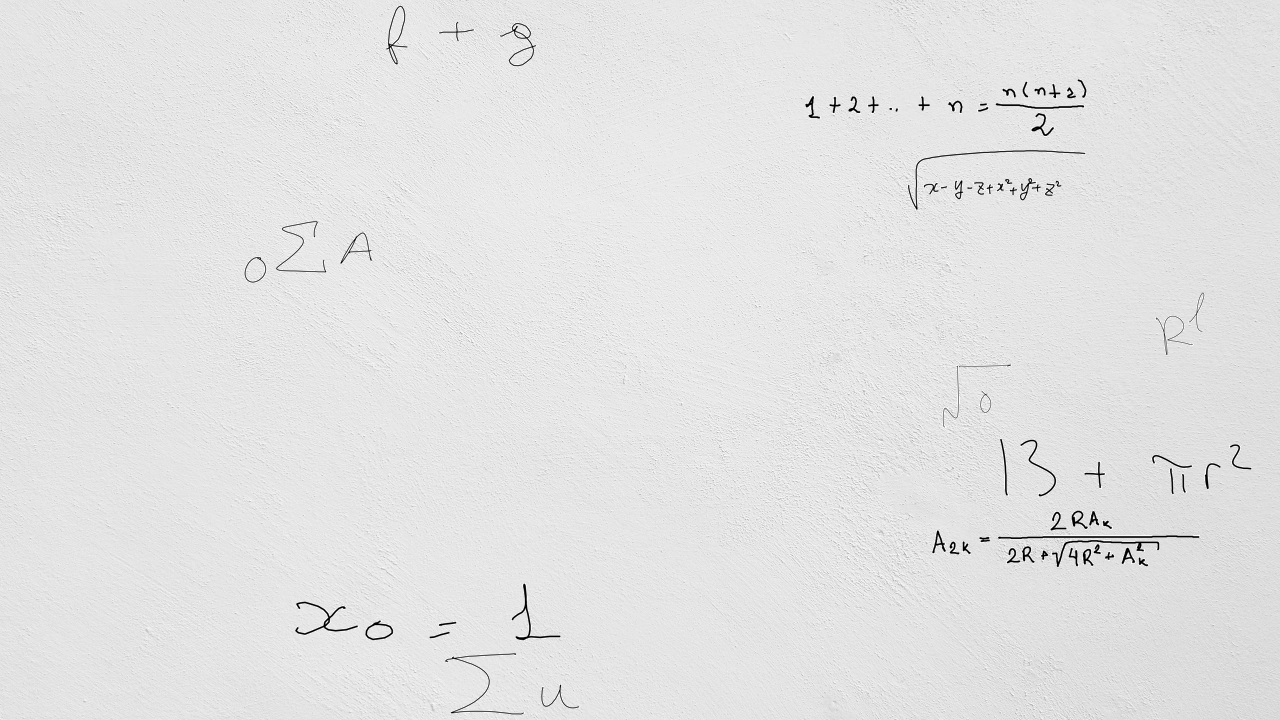 f + g
1 + 2 + .. + n = n(n+2)/2
√(x-y-z+x²+y²+z²)
₀∑A
Rˡ
√0
13 + πr²
A₂ₖ = 2RAₖ/(2R+√(4R²+Aₖ²))
x₀ = 1
∑u